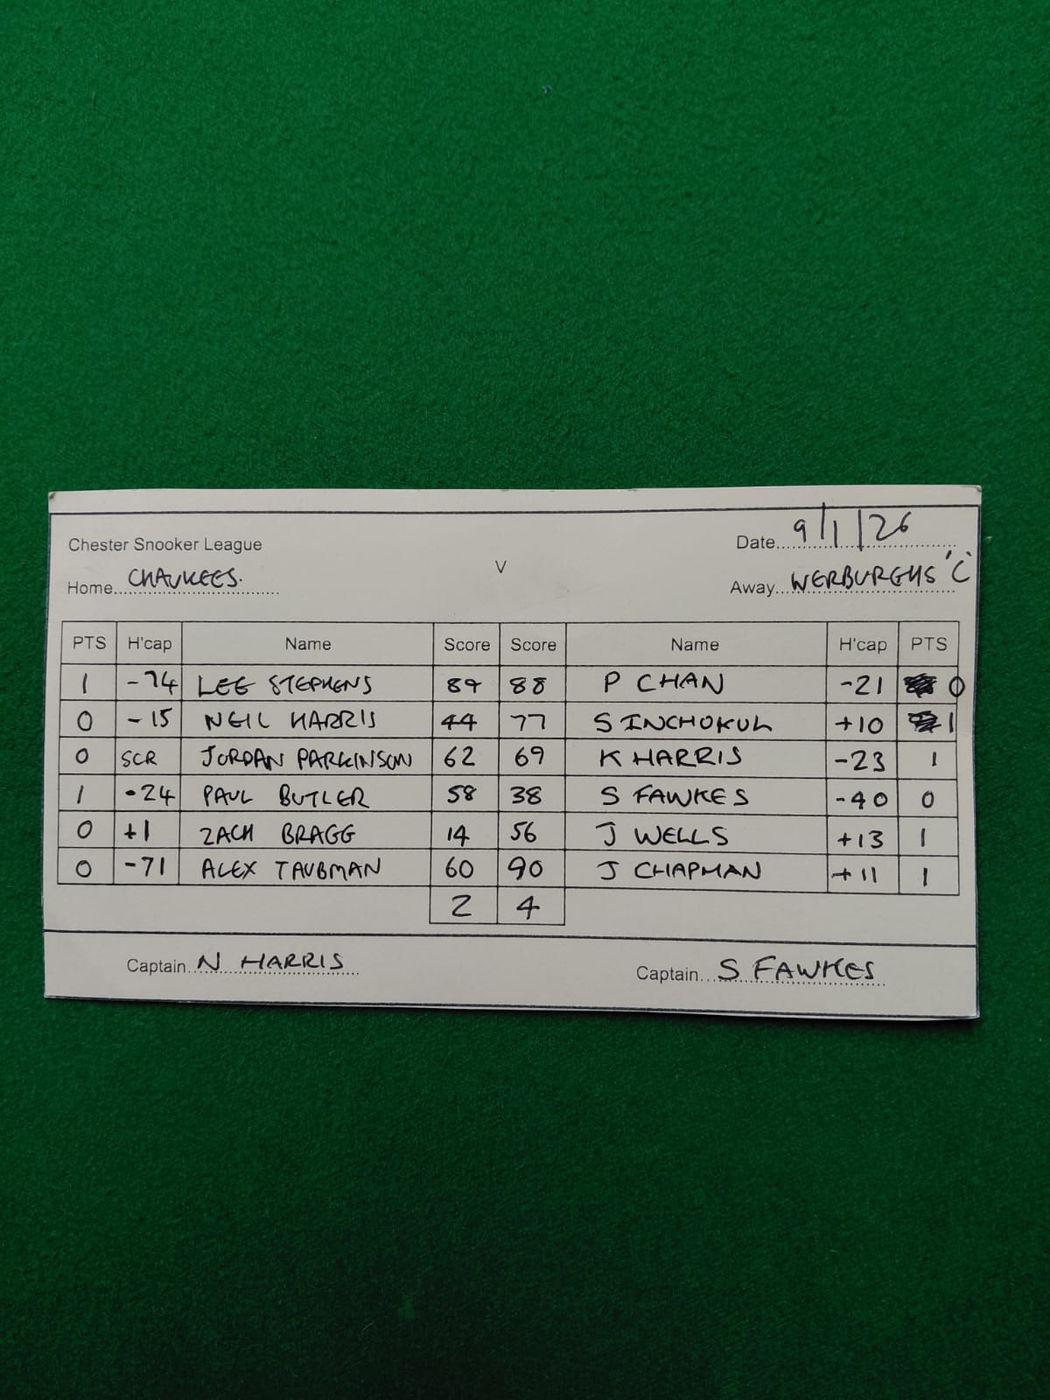 Chester Snooker League
Date 9/1/26
Home CHAVKEES. V Away WERBURGHS 'C'
PTS H'cap Name Score Score Name H'cap PTS
1 -74 LEE STEPHENS 89 88 P CHAN -21 0
0 -15 NEIL HARRIS 44 77 S INCHOKUL +10 1
0 SCR JORDAN PARKINSON 62 69 K HARRIS -23 1
1 -24 PAUL BUTLER 58 38 S FAWKES -40 0
0 +1 ZACH BRAGG 14 56 J WELLS +13 1
0 -71 ALEX TAUBMAN 60 90 J CHAPMAN +11 1
2 4
Captain N HARRIS Captain S FAWKES